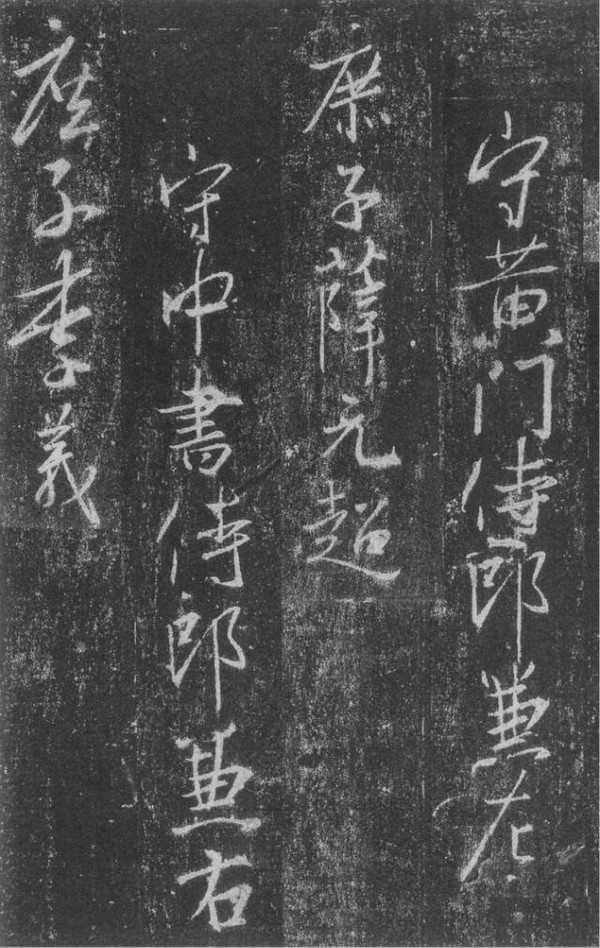 守黄门侍郎兼左
庶子薛元超
守中書侍郎兼右
庶子李義